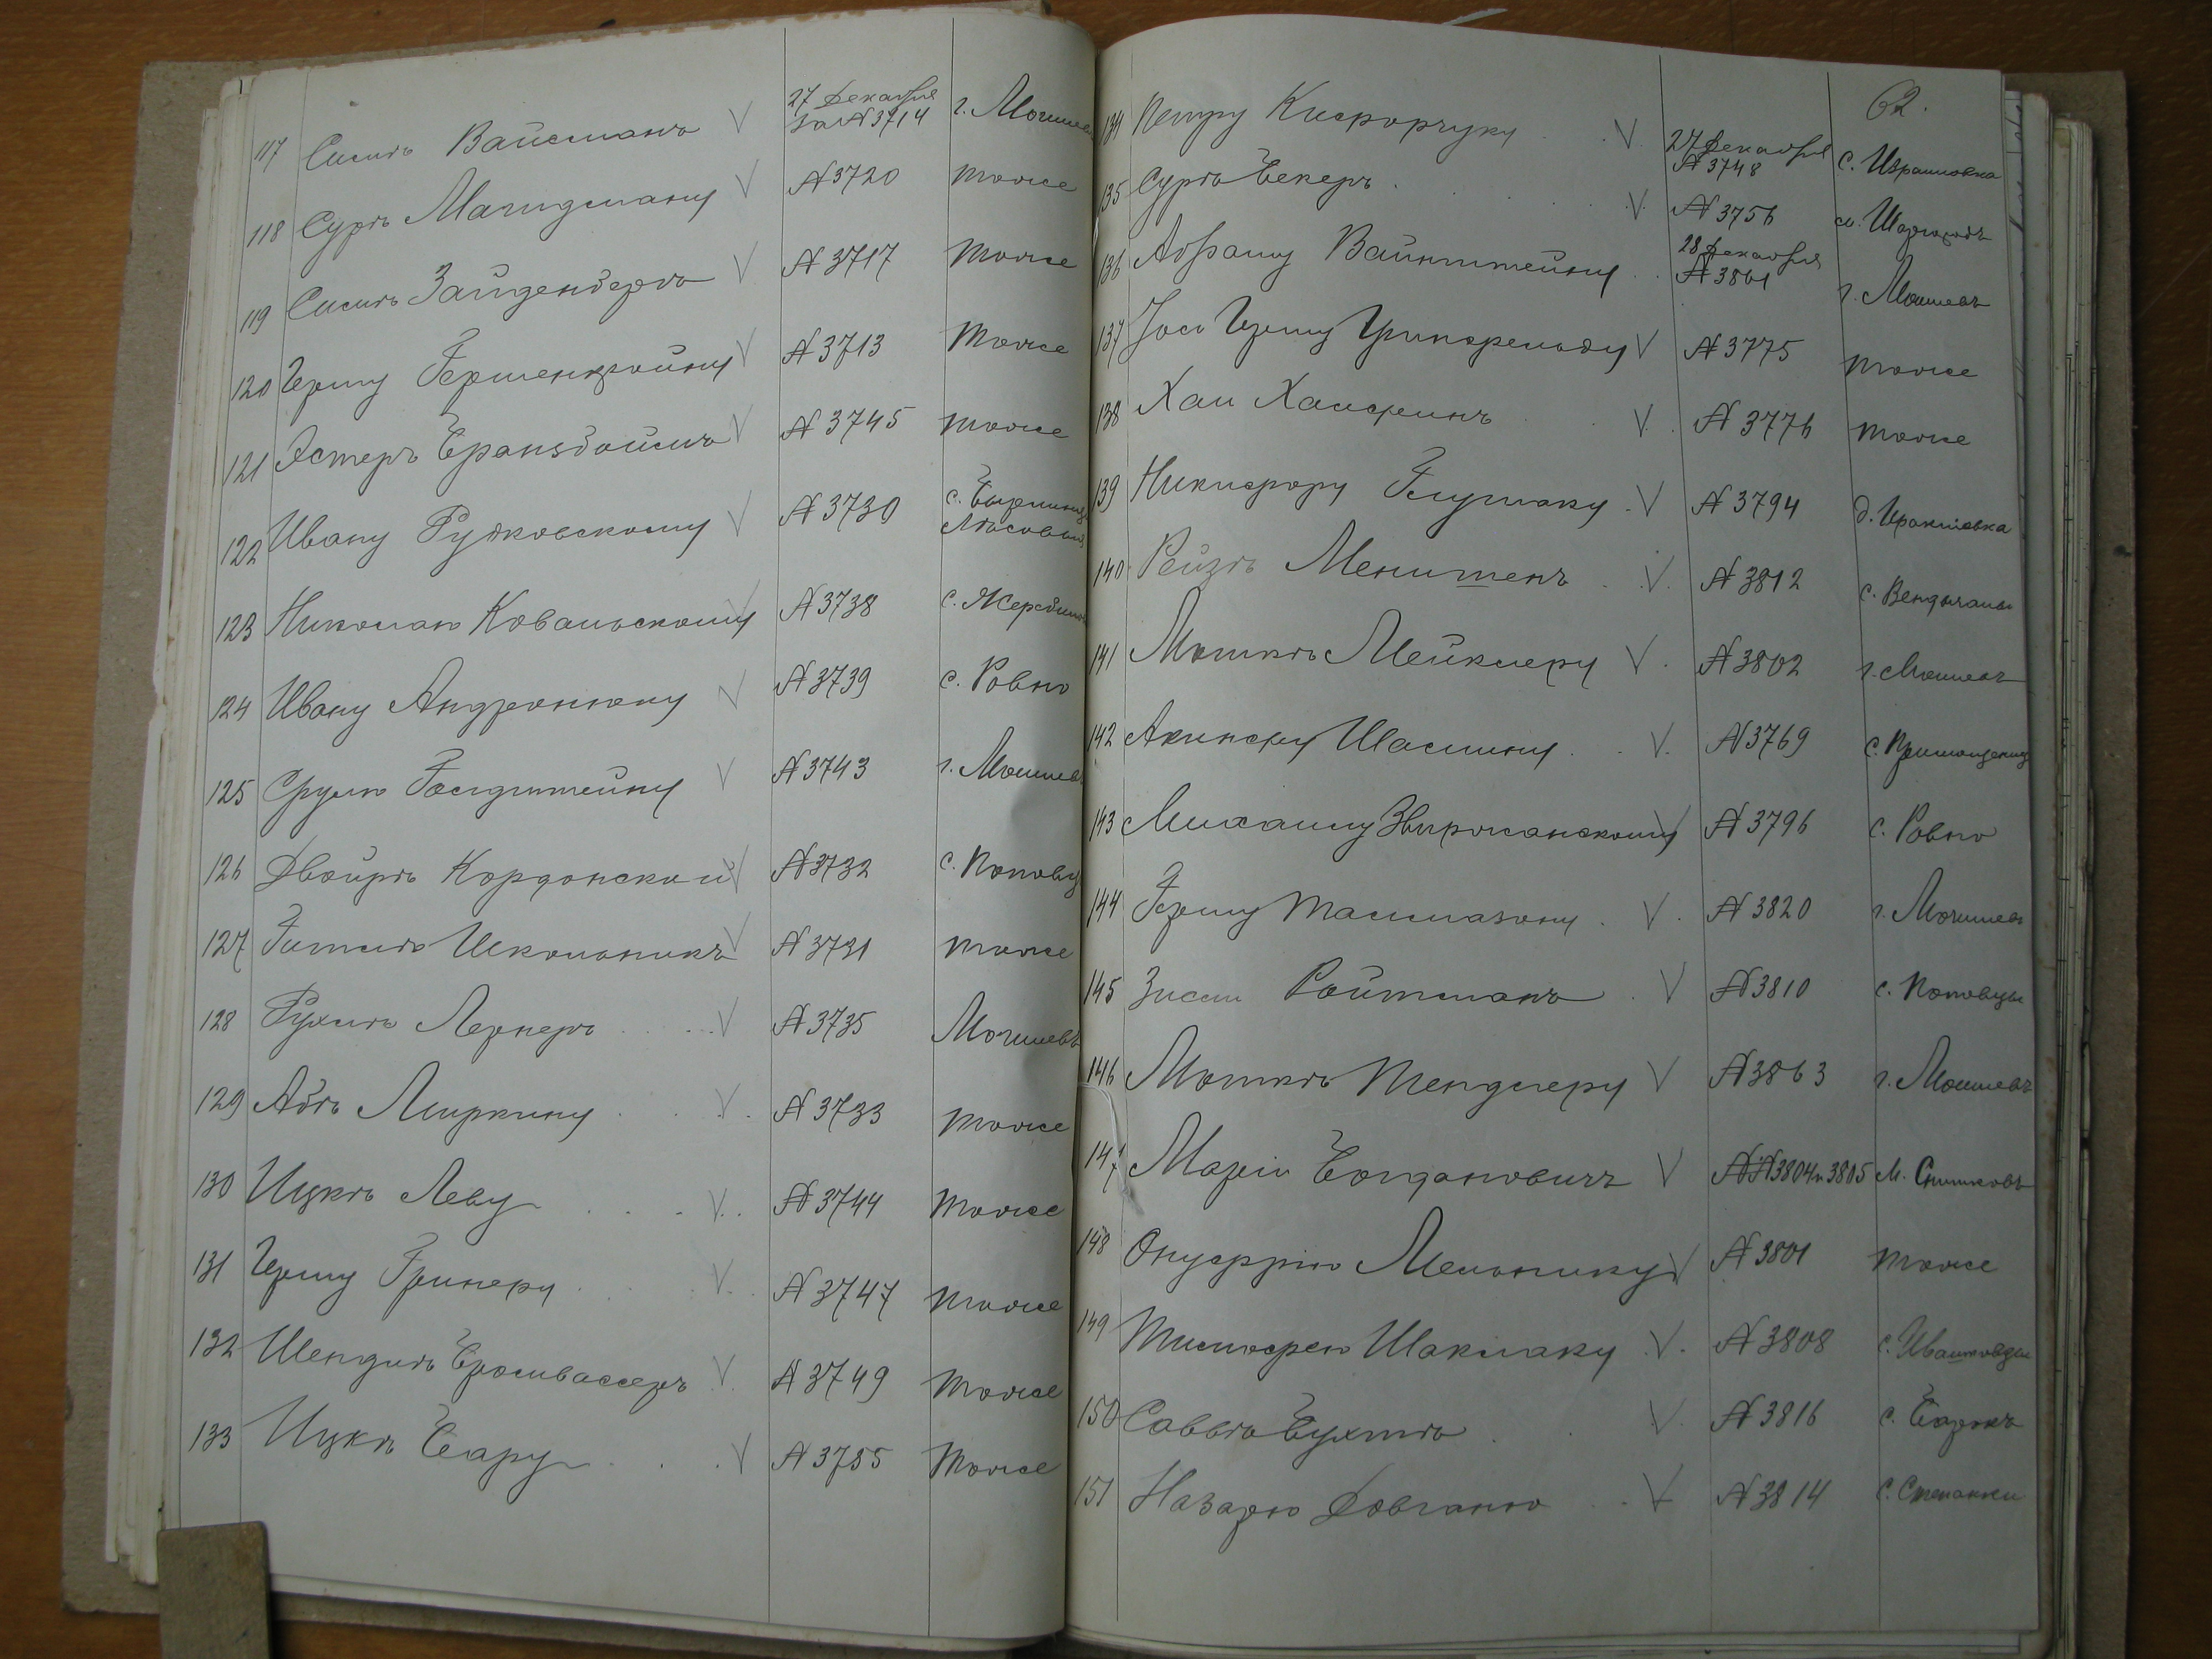 117 Сисиѣ Вайсманъ V 27 Декабря за №3714 г. Могилев
118 Сурѣ Магидману V №3720 тоже
119 Сисиѣ Зайденбергъ V №3717 тоже
120 Гершу Гершенкройну V №3713 тоже
121 Эстеръ Бранзбоймъ V №3745 тоже
122 Ивану Рудковскому V №3730
123 Николаю Ковальскому V №3738 с.
124 Ивану Андронюку V №3739 с. Ровно
125 Срулю Гольдштейну V №3743 г. Могилев
126 Двойрѣ Кордонской V №3732 с. Поповц
127 Гитлѣ Школьникъ V №3731 тоже
128 Рухлѣ Лернеръ V №3735 Могилевъ
129 Абѣ Лиркину V №3733 тоже
130 Ицкѣ Леву V №3744 тоже
131 Гершу Гринеру V №3747 тоже
132 Шендлѣ Бронвассеръ V №3749 тоже
133 Ицкѣ Беару V №3755 тоже
62.
134 Петру Кифорчуку V 27 Декабря №3748 с.
135 Сурѣ Бекеръ V №3756 м. Шаргородъ
136 Абраму Вайнштейну 28 Декабря №3801 г. Могилевъ
137 Іосю Гершу Гринфельду V №3775 тоже
138 Хаи Хаифинъ V №3776 тоже
139 Никифору Глушаку V №3794 д.
140 Рейзѣ Менишенъ V №3812 с. Вендычаны
141 Мошкѣ Мейклеру V №3802 г. Могилевъ
142 V №3769 с.
143 Михаилу V №3796 с. Ровно
144 Гершу Талмазону V №3820 г. Могилевъ
145 Зисли Ройтманъ V №3810 с. Поповцы
146 Мошкѣ Тендлеру V №3863 г. Могилевъ
147 Маріи Богдановичъ V №№3804 и 3805 М. Снитковъ
148 Онуфрію Мельнику V №3801 тоже
149 Тимофею Шаклаку V №3808 с. Ивашковцы
150 Саввѣ Бухтѣ V №3816 с.
151 Назарю Довганю V №3814 с. Степанки